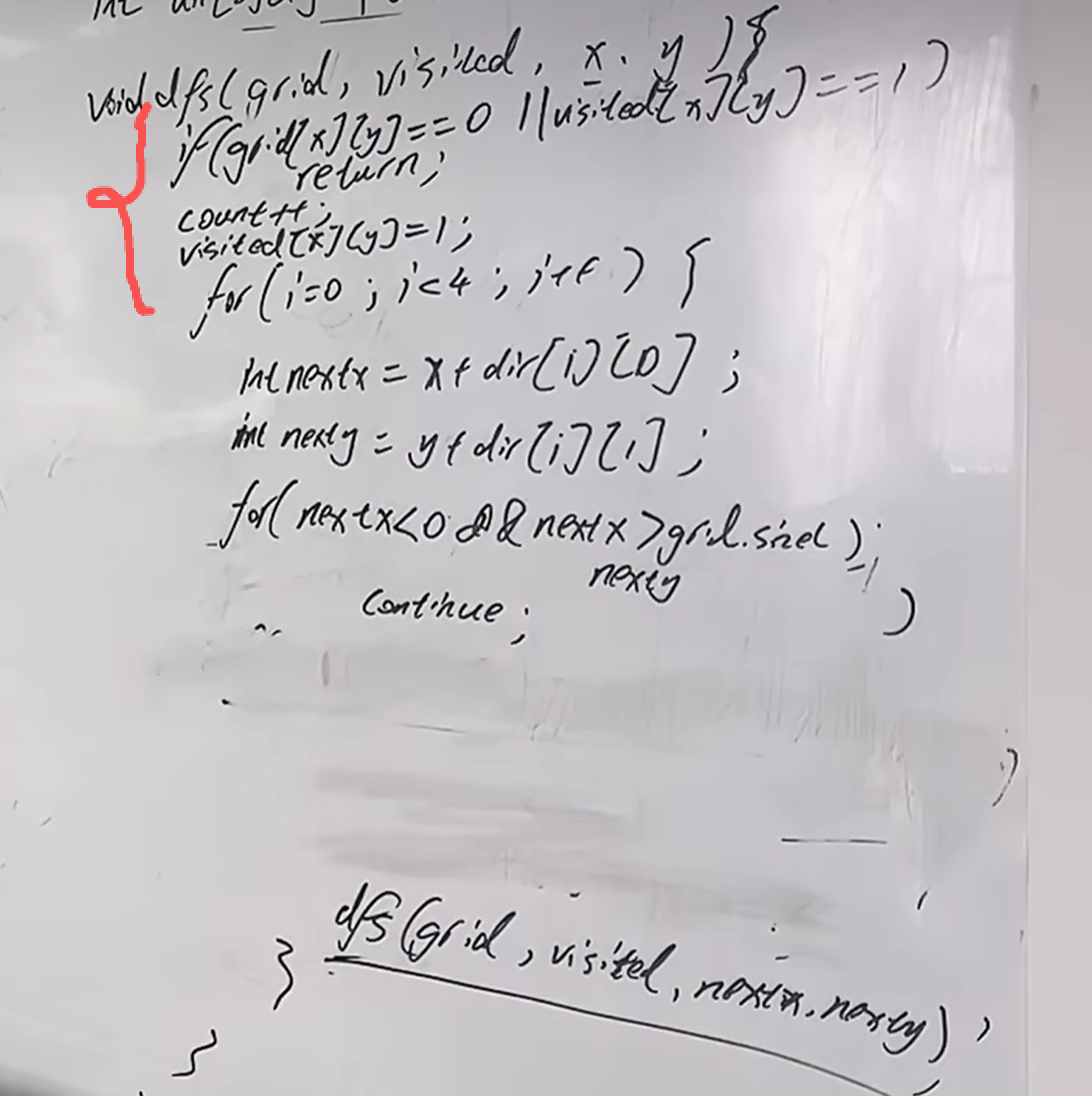 void dfs(grid, visited, x. y ){
if(grid[x][y]==0 ||visited[x][y]==1)
return;
count++;
visited[x][y]=1;
for(i=0; i<4; i++) {
int nextx = x+dir[i][0];
int nexty = y+dir[i][1];
for(nextx<0 && nextx>grid.size();
nexty -1
continue; )
dfs(grid, visited, nextx, nexty);
}
}